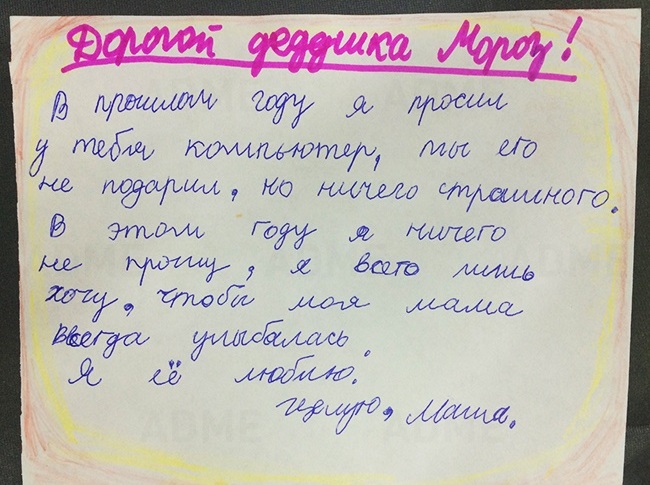 Дорогой дедушка Мороз!
В прошлом году я просил
у тебя компьютер, ты его
не подарил, но ничего страшного.
В этом году я ничего
не прошу, я всего лишь
хочу, чтобы моя мама
всегда улыбалась.
Я её люблю.
целую, Маша.
ADME
ADME